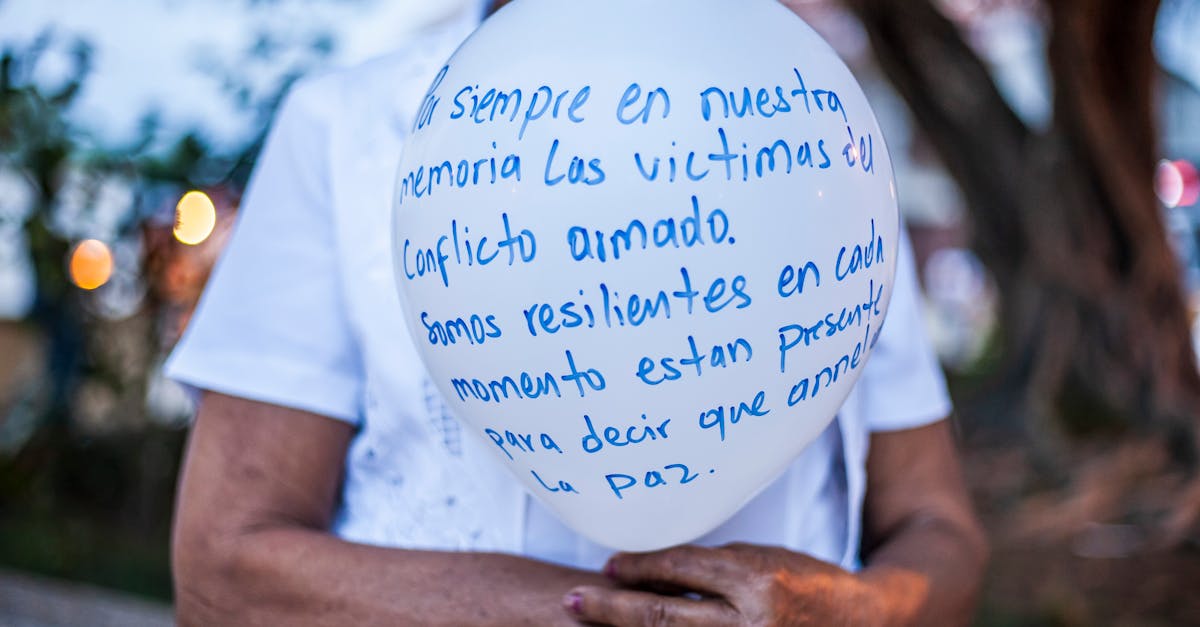 Por siempre en nuestra
memoria Las victimas del
Conflicto armado.
Somos resilientes en cada
momento estan presente
para decir que annela
La paz.